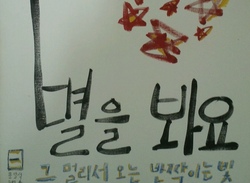 별을 봐요
그 멀리서 오는 반짝이는 빛